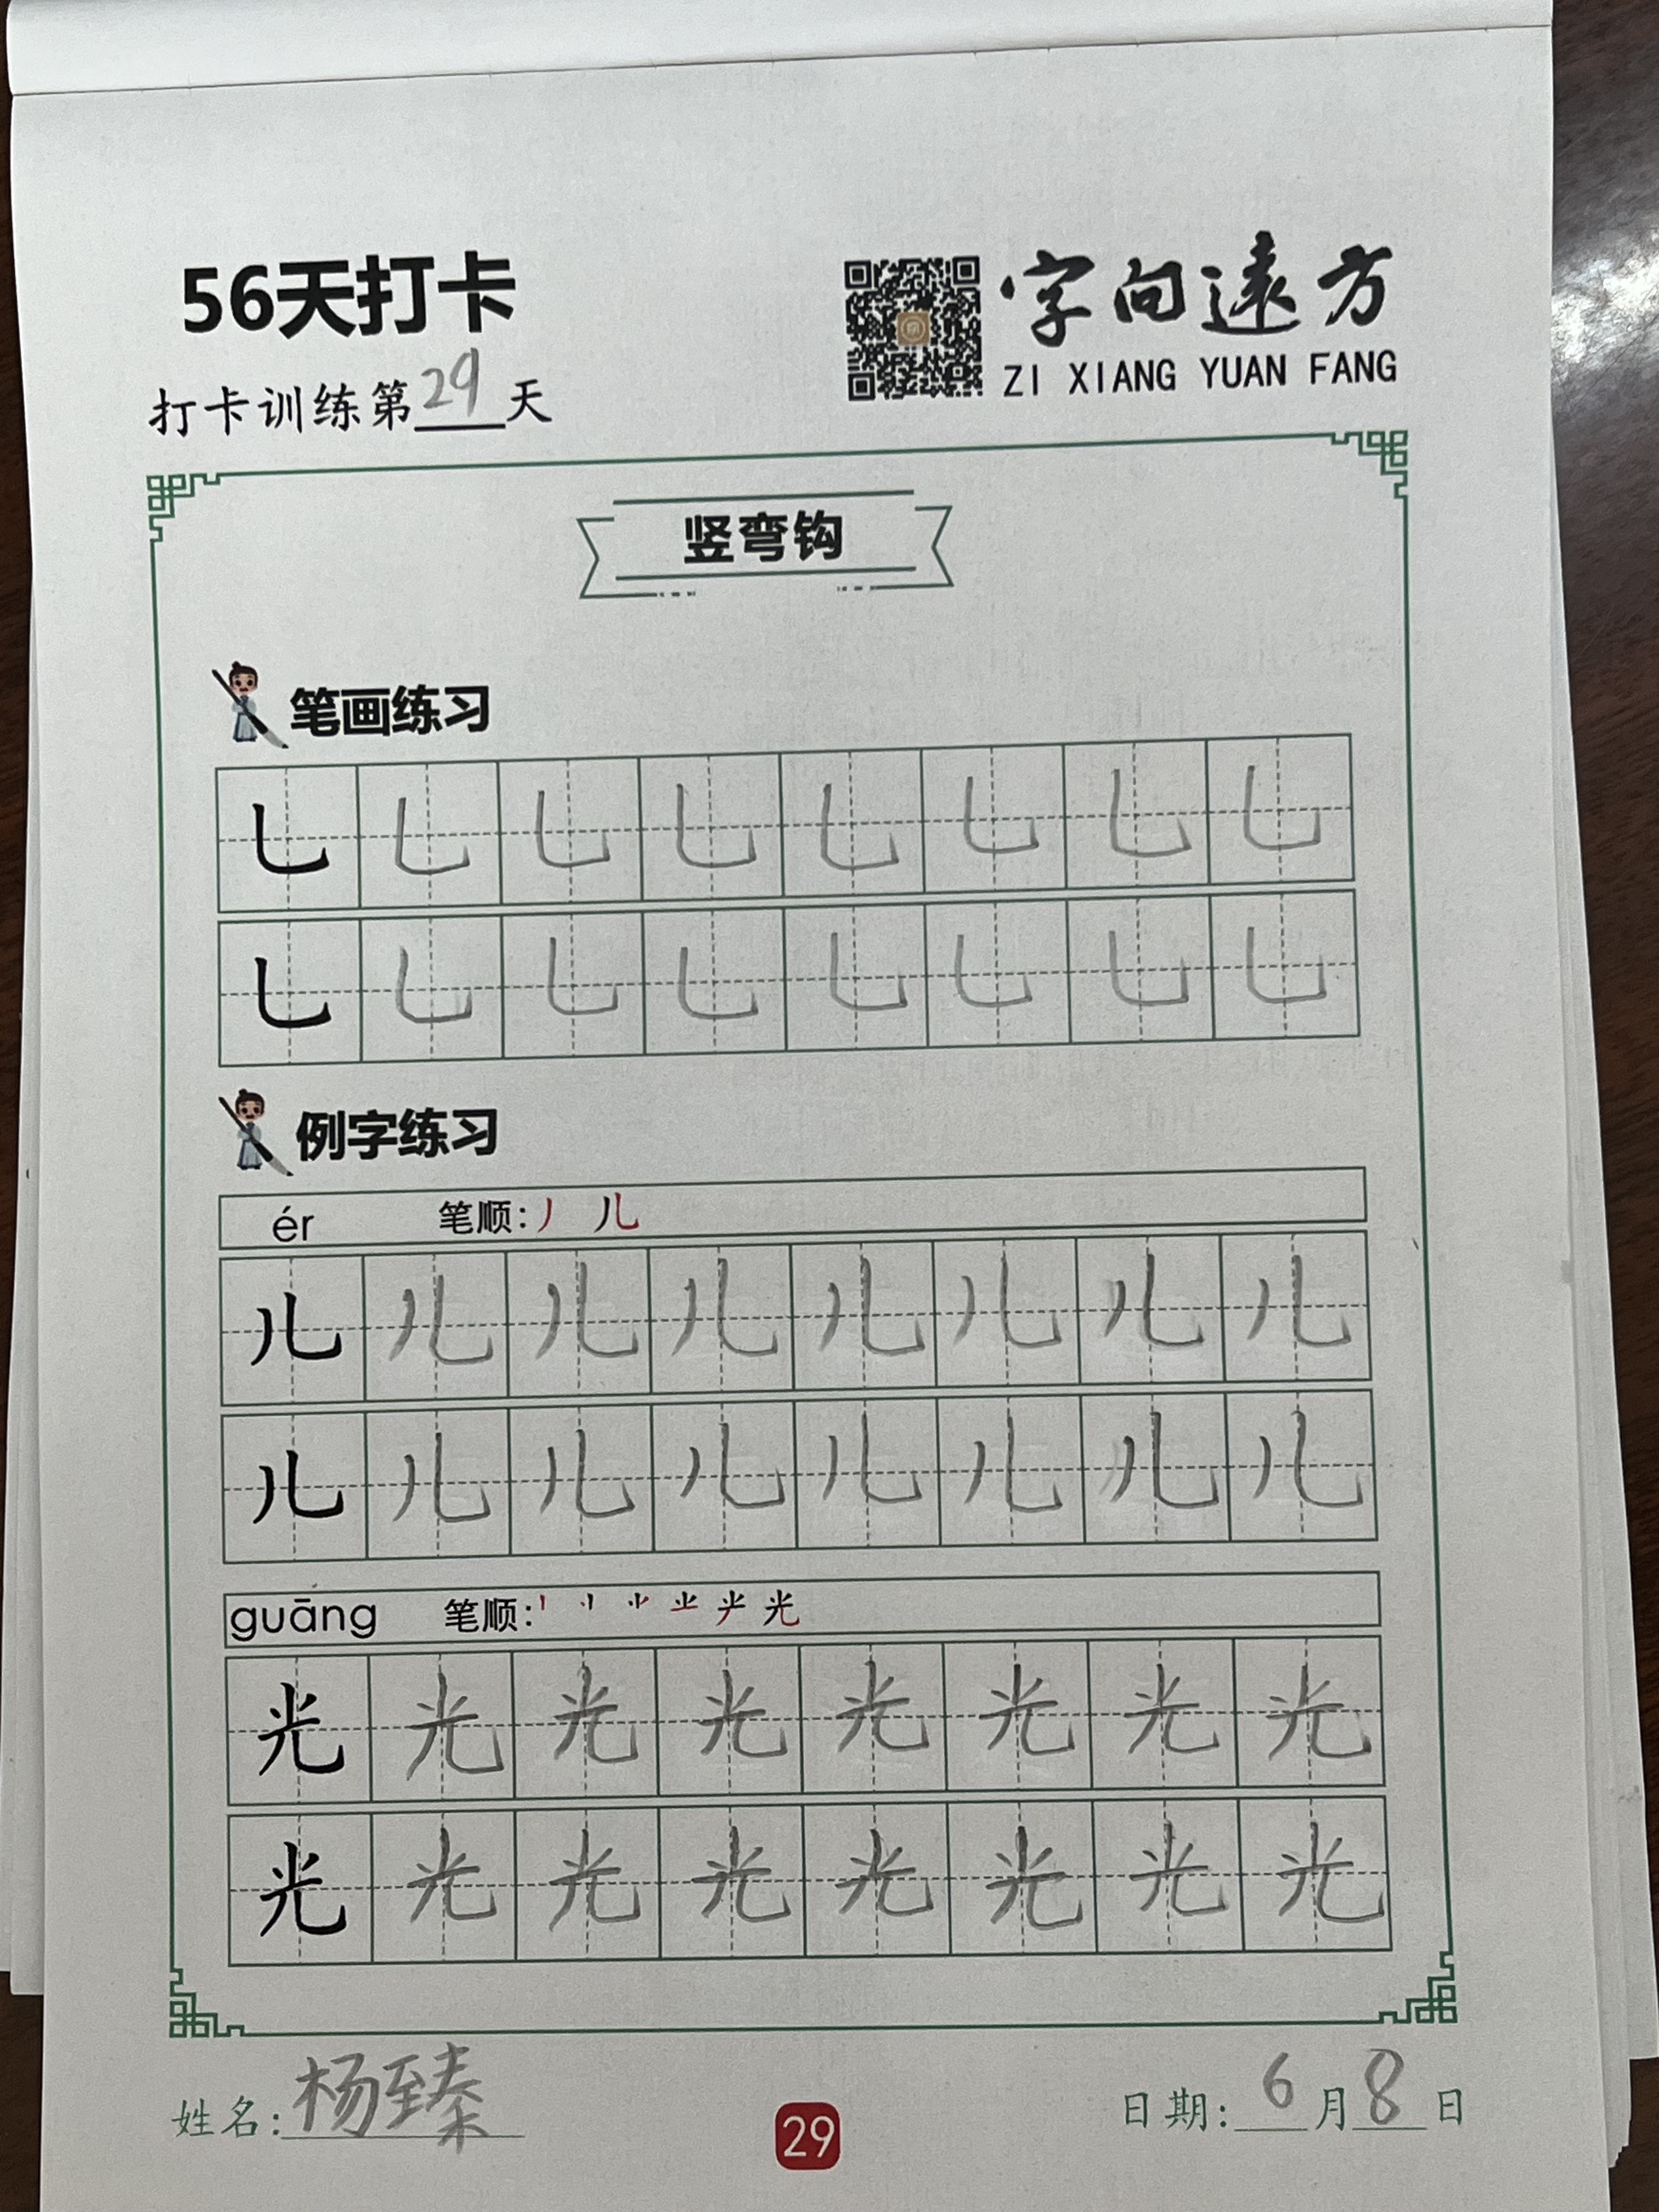 56天打卡
字向遠方
ZI XIANG YUAN FANG
打卡训练第29天
竖弯钩
笔画练习
㇄ ㇄ ㇄ ㇄ ㇄ ㇄ ㇄ ㇄
㇄ ㇄ ㇄ ㇄ ㇄ ㇄ ㇄ ㇄
例字练习
ér 笔顺:丿 儿
儿 儿 儿 儿 儿 儿 儿 儿
儿 儿 儿 儿 儿 儿 儿 儿
guāng 笔顺: 光
光 光 光 光 光 光 光 光
光 光 光 光 光 光 光 光
姓名:杨臻
29
日期:6月8日